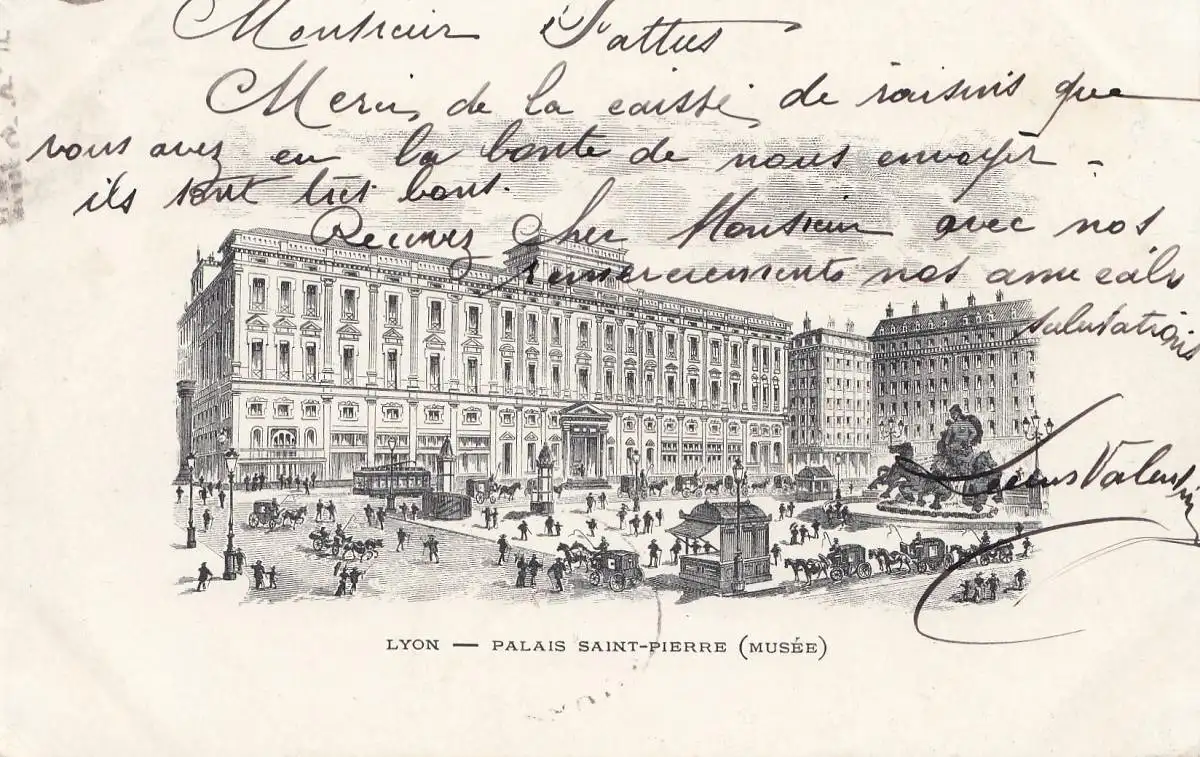 Monsieur Pattus
Merci de la caisse de raisins que
vous avez eu la bonté de nous envoyer -
ils sont très bons.
Recevez Cher Monsieur avec nos
remerciements nos amicales
salutations
Valentin
LYON — PALAIS SAINT-PIERRE (MUSÉE)